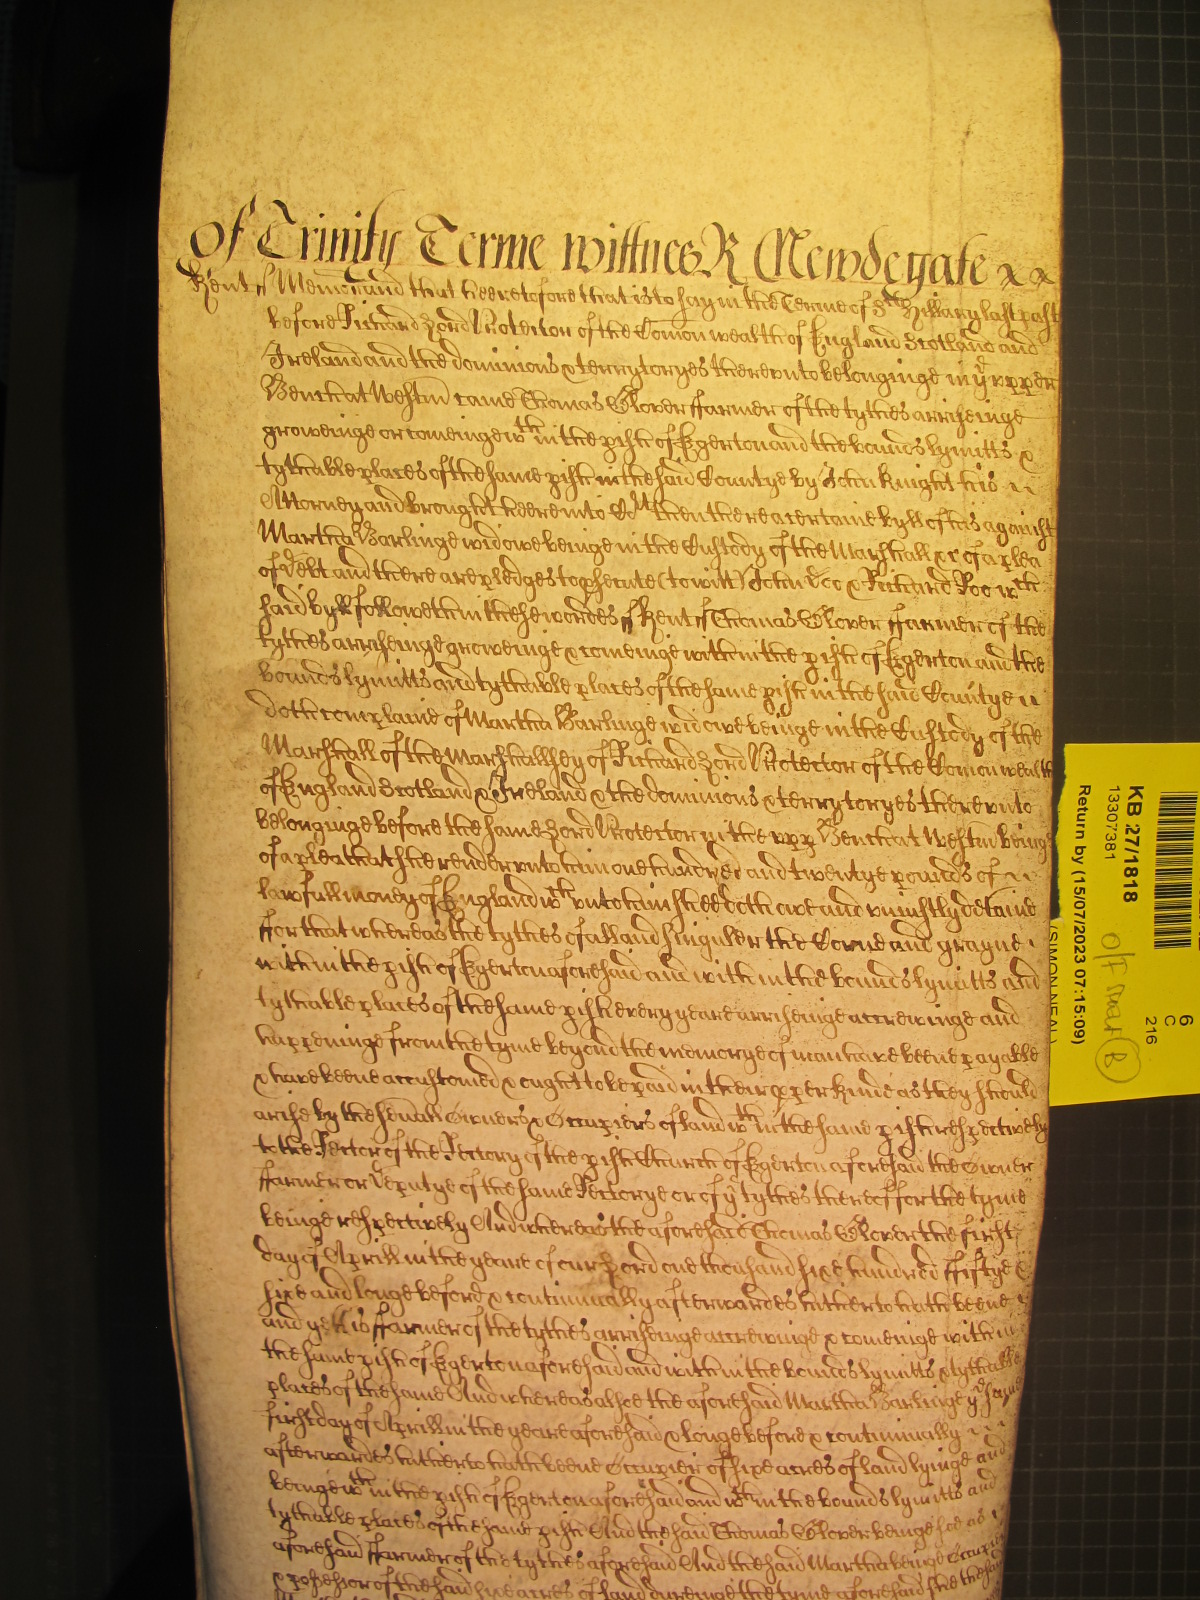 Of Trinity Terme wittnes R Newdegate x x
Kent ss Memorand that heeretofore that is to say in the Terme of St Hillary last past
before Richard Lord Protector of the Comon wealth of England Scotland and
Ireland and the dominions & terrytoryes thereunto belonginge in ye upper
Bench at Westm came Thomas Glover ffarmer of the tythes arriseinge
groweinge or comeinge wth in the pish of Egerton and the bounds lymitts &
tytheable places of the same pish in the said Countye by John Knight his
Attorney and brought heere into Cort then there a certaine byll of his against
Martha Barlinge widowe beinge in the Custody of the Marshall &c of a plea
of Debt and there are pledges to psecute (to witt) John Doe & Richard Roe wch
said byll followeth in these wordes ss Kent ss Thomas Glover ffarmer of the
tythes arriseinge groweinge & comeinge within the pish of Egerton and the
bounds lymitts and tytheable places of the same pish in the said Countye
doth complaine of Martha Barlinge widowe beinge in the Custody of the
Marshall of the Marshallsey of Richard Lord Protector of the Comon wealth
of England Scotland & Ireland & the dominions & terrytoryes thereunto
belonginge before the same Lord Protector in the upp Bench at Westm beinge
of a plea that shee render unto him one hundred and twentye pounds of
lawfull money of England wch unto him shee doth owe and uniustly detaine
ffor that whereas the tythes of all and singuler the Corne and grayne
within the pish of Egerton aforesaid and within the bounds lymitts and
tytheable places of the same pish every yeare arriseinge accrewinge and
happeninge from the tyme beyond the memorye of man have beene payable
& have beene accustomed & ought to be paid in their pper kind as they should
arise by the seuall Owners & Occupiers of land wth in the same pish respectively
to the Rector of the Rectory of the pish Church of Egerton aforesaid the Owner
ffarmer or Deputye of the same Rectorye or of ye tythes thereof for the tyme
beinge respectively And whereas the aforesaid Thomas Glover the first
day of Aprill in the yeare of our Lord one thousand sixe hundred ffiftye
sixe and longe before & continually afterwardes hitherto hath beene
and yet is ffarmer of the tythes arriseinge accrewinge & comeinge within
the same pish of Egerton aforesaid and within the bounds lymitts & tytheable
places of the same And whereas alsoe the aforesaid Martha Barlinge ye sayd
first day of Aprill in the yeare aforesaid & longe before & continually
afterwardes hitherto hath beene Occupier of sixe acres of land lyinge and
beinge wth in the pish of Egerton aforesaid and wth in the bounds lymitts and
tytheable places of the same pish And the said Thomas Glover beinge soe as
aforesaid ffarmer of the tythes aforesaid And the said Martha beinge Occupier
& possessor of the said sixe acres of land dureinge the tyme aforesaid shee the said
KB 27/1818
13307381
Return by (15/07/2023 07:15:09)
(SIMON NEAL)
6
C
216